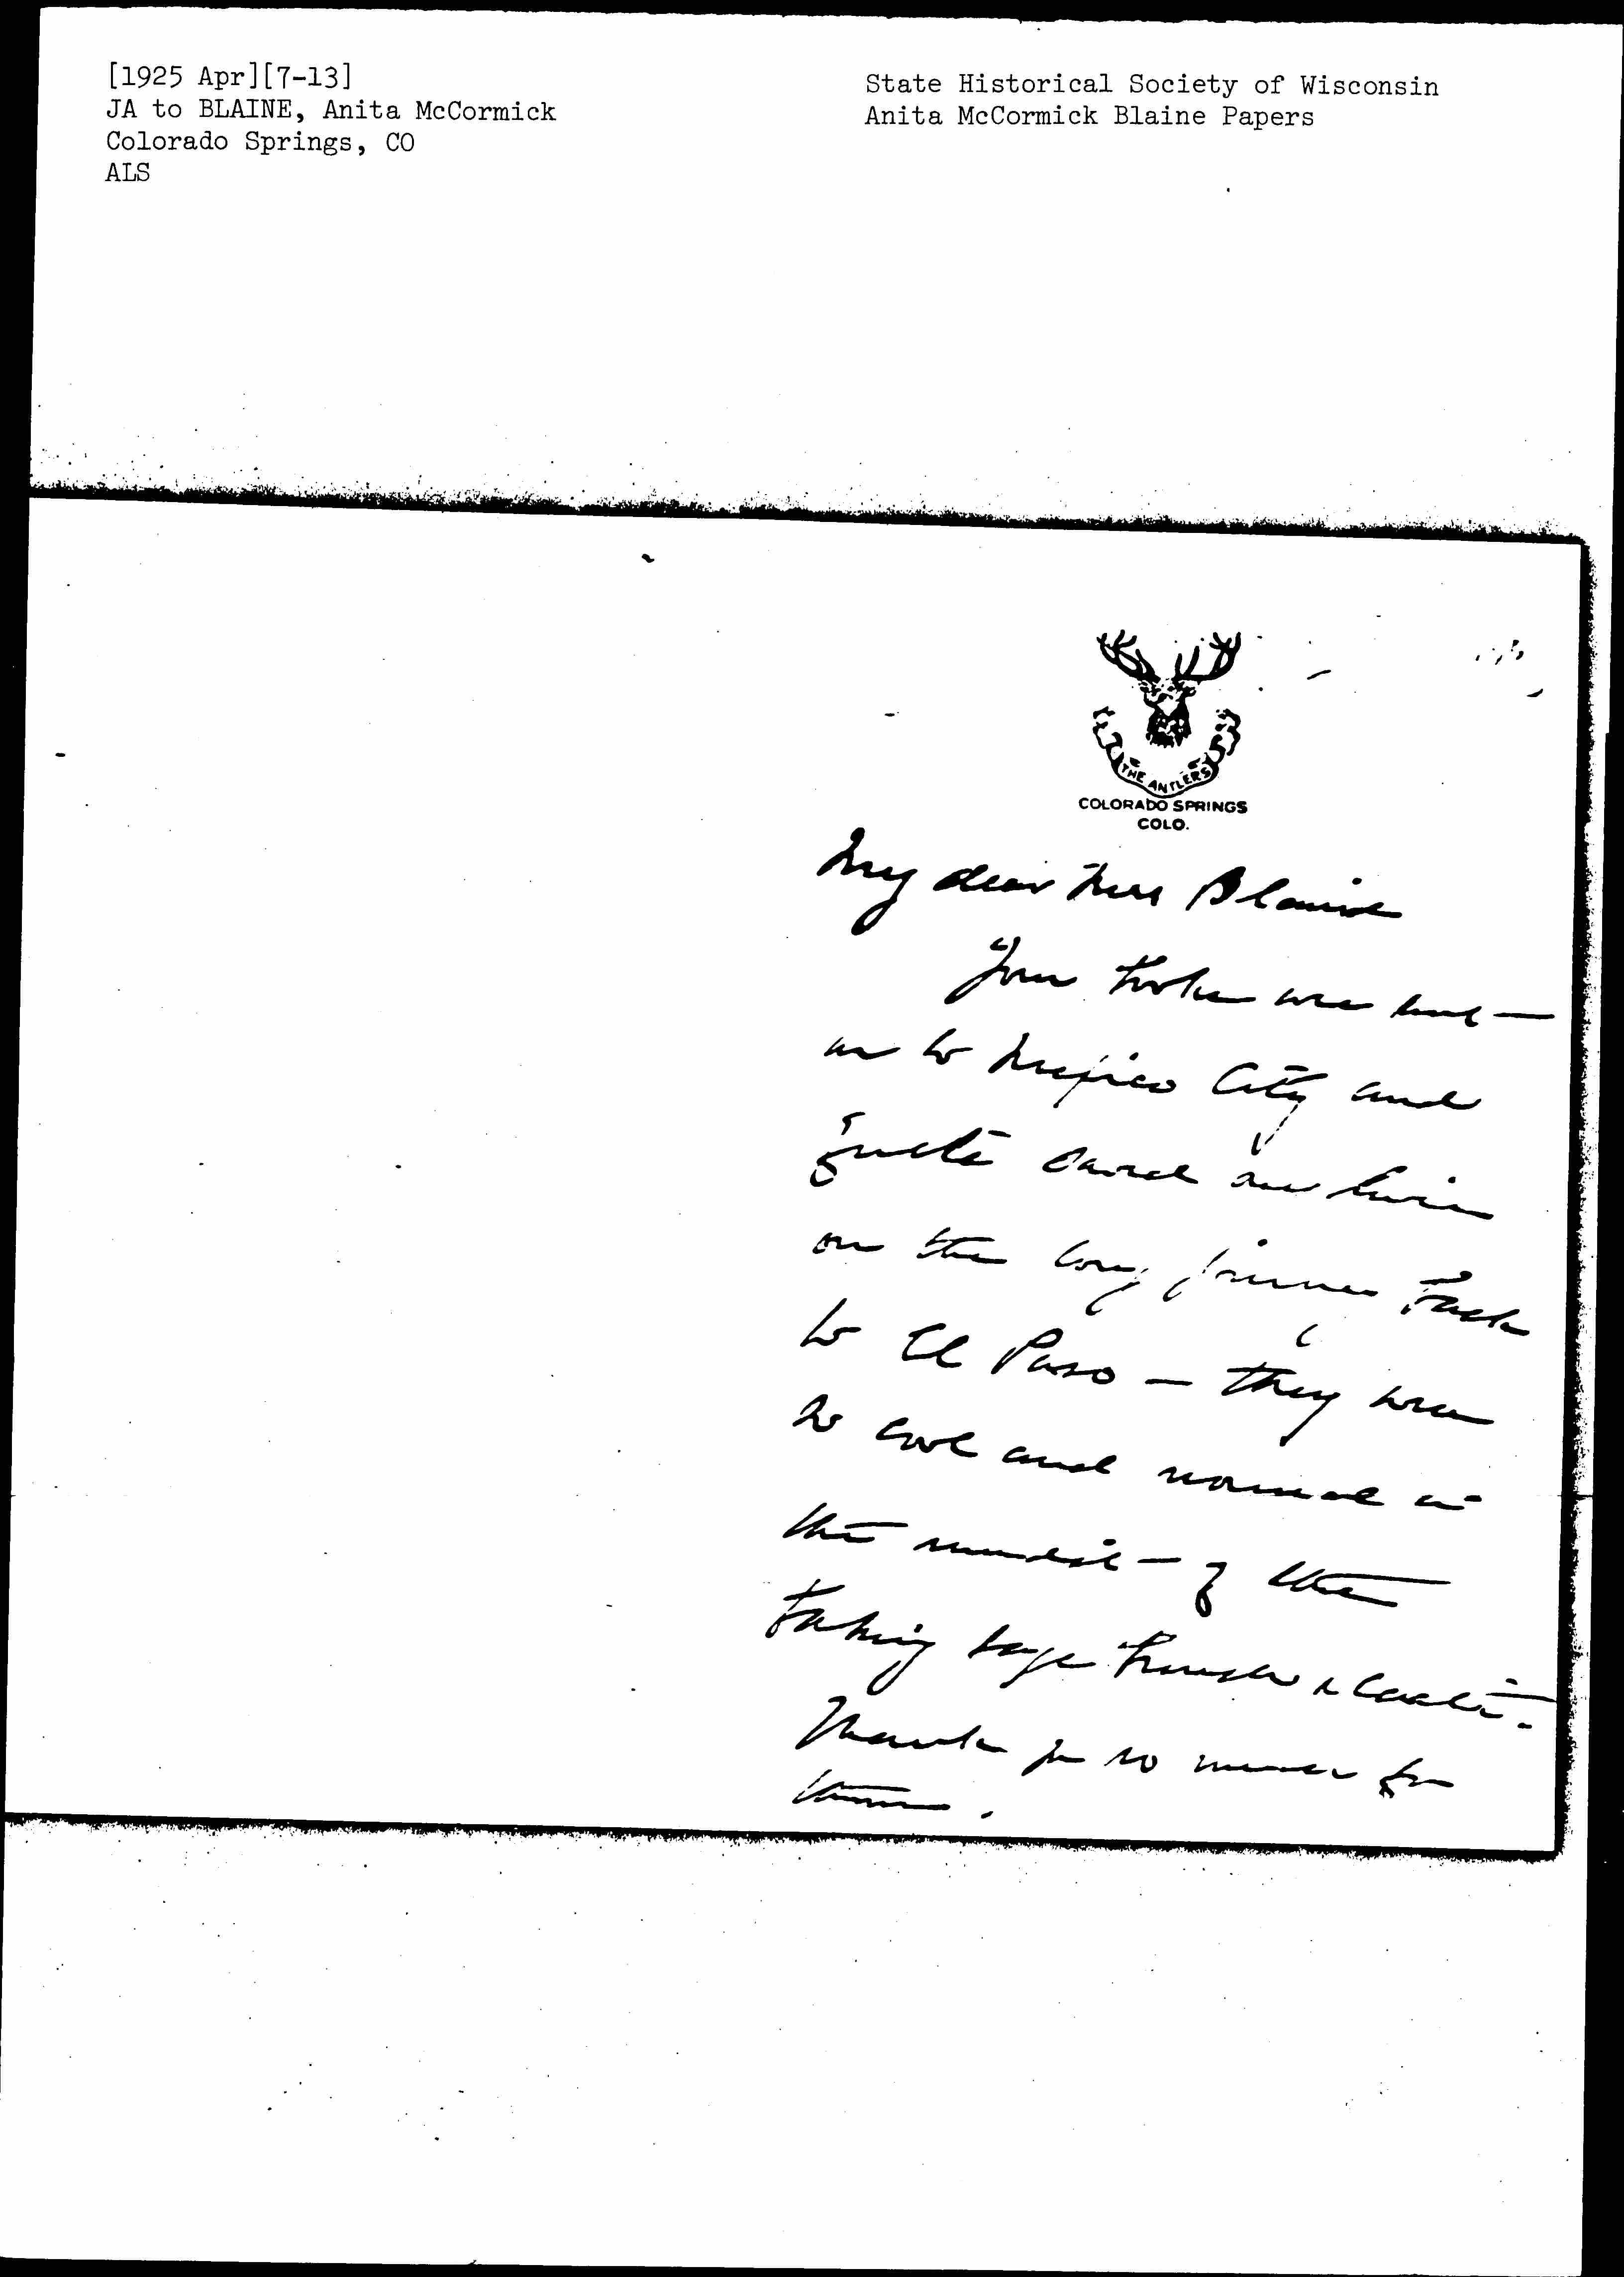 [1925 Apr][7-13]
JA to BLAINE, Anita McCormick
Colorado Springs, CO
ALS
State Historical Society of Wisconsin
Anita McCormick Blaine Papers
THE ANTLERS
COLORADO SPRINGS
COLO.
My dear Mrs Blaine
Your books were sent
us to Mexico City and
quite saved our lives
on the long journey back
to El Paso — they were
so cool and normal in
the midst of the
Thank you so much for
them.